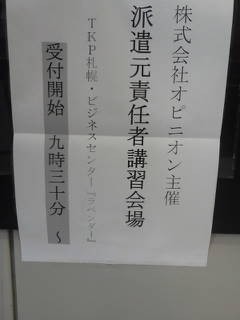 株式会社オピニオン主催
派遣元責任者講習会場
TKP札幌・ビジネスセンター『ラベンダー』
受付開始　九時三十分　～